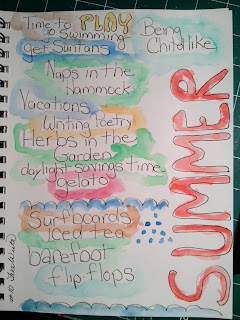 Time to PLAY
go Swimming
get Suntans
Being
Childlike
Naps in the
Hammock
Vacations
Writing Poetry
Herbs in the
Garden
daylight savings time
gelato
Surfboards
Iced tea
barefoot
flip flops
SUMMER